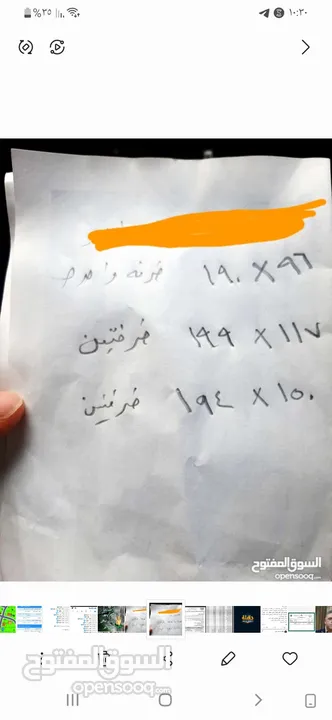 ١٠:٣٠
٪٣٥
١٩٠ X ٩٦ ضرفه واحده
١٩٩ X ١١٧ ضرفتين
١٩٤ X ١٥٠ ضرفتين
السوق المفتوح
opensooq.com
السوق المفتوح
opensooq.com